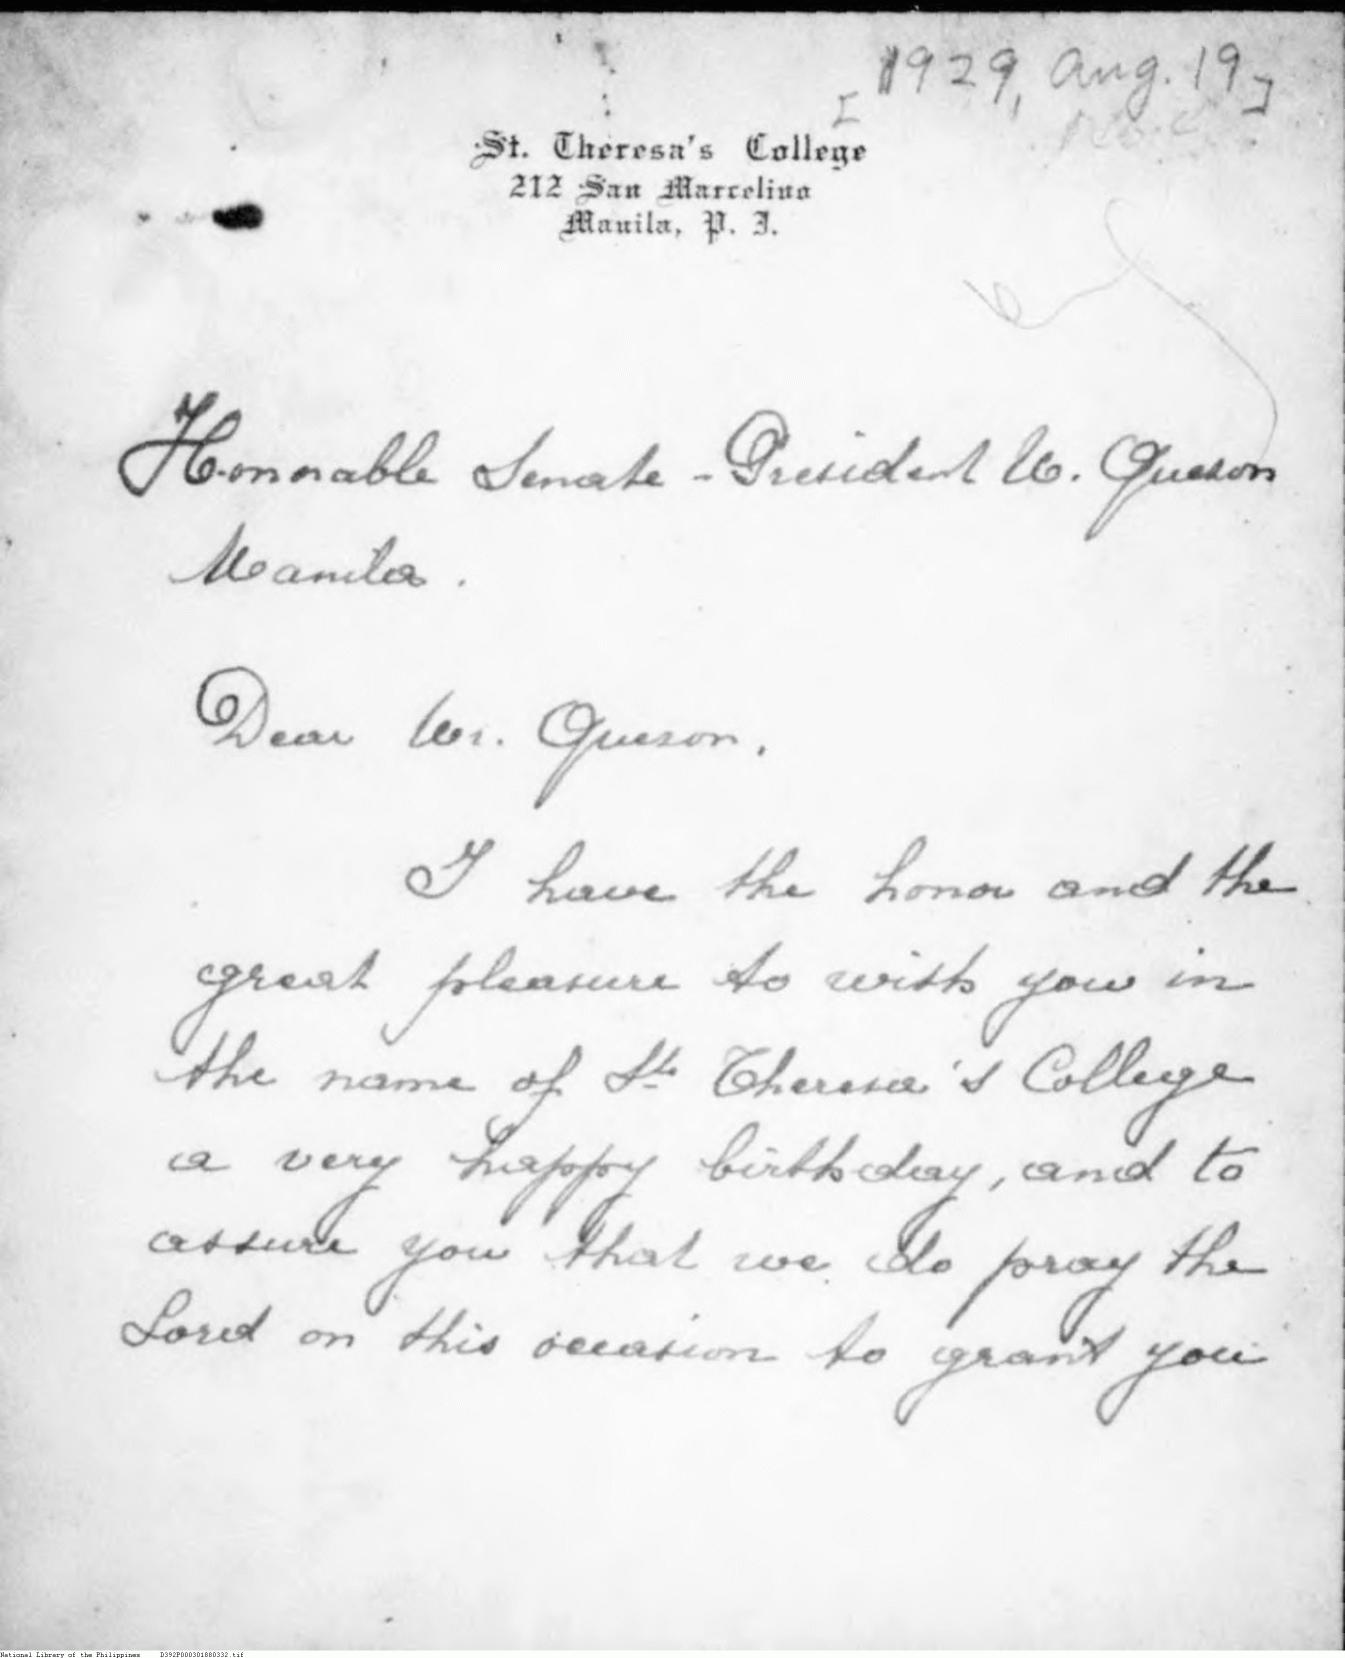 [1929, Aug. 19]
St. Theresa's College
212 San Marcelino
Manila, P. I.
Honorable Senate - President M. Queson
Manila.
Dear Mr. Queson,
I have the honor and the
great pleasure to wish you in
the name of St. Theresa's College
a very happy birthday, and to
assure you that we do pray the
Lord on this occasion to grant you
National Library of the Philippines D392P000301880332.tif